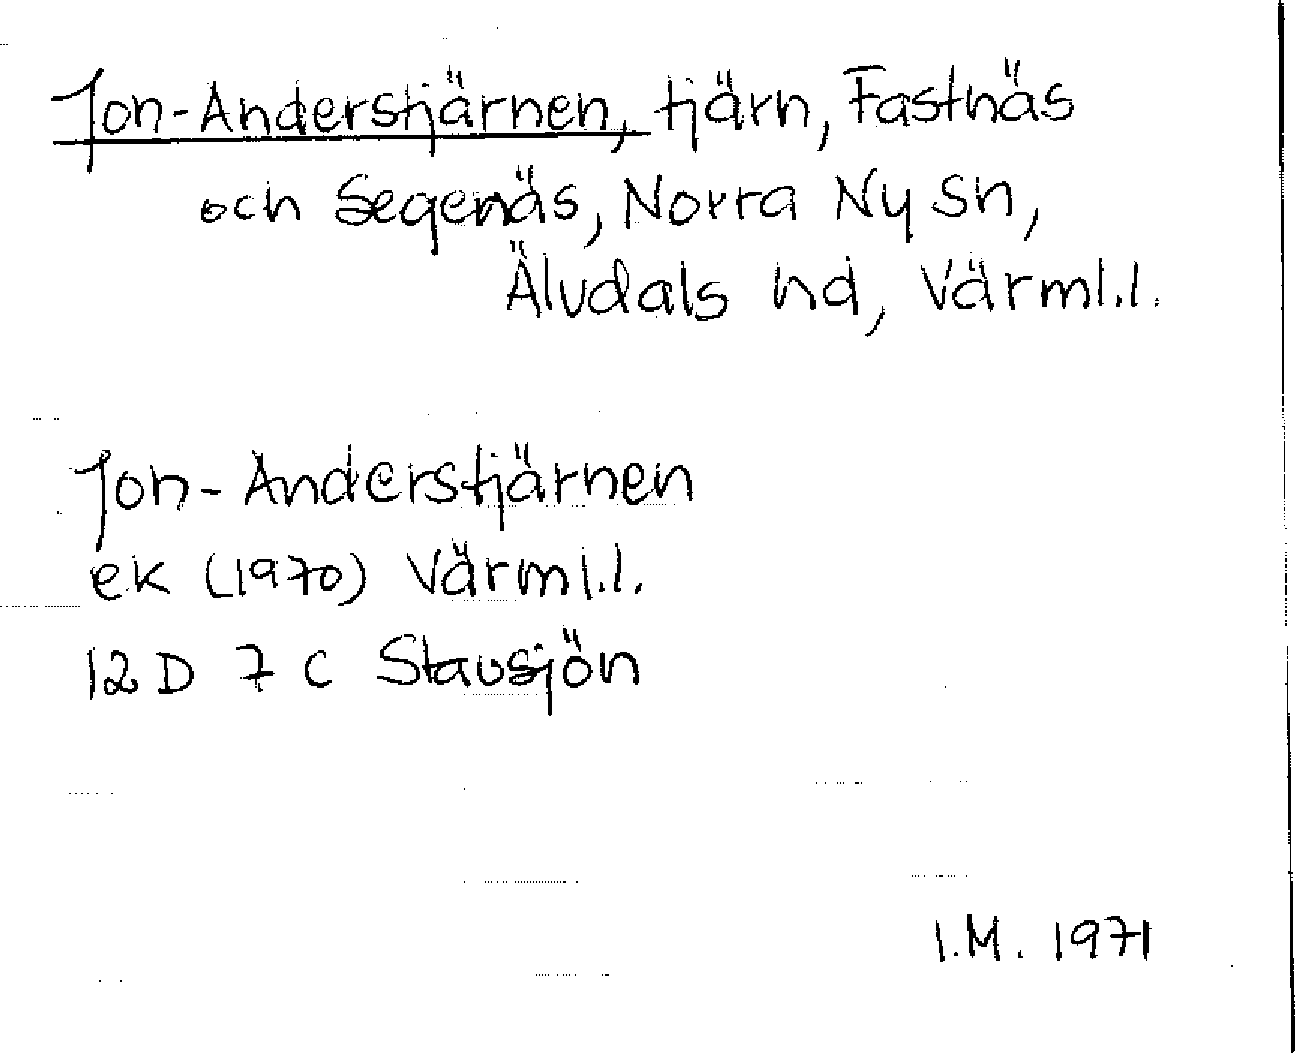 Jon-Anderstjärnen, tjärn, Fastnäs
och Segenäs, Norra Ny Sn,
Älvdals hd, Värml.l.
Jon-Anderstjärnen
ek (1970) Värml.l.
12 D 7 C Stavsjön
I.M. 1971